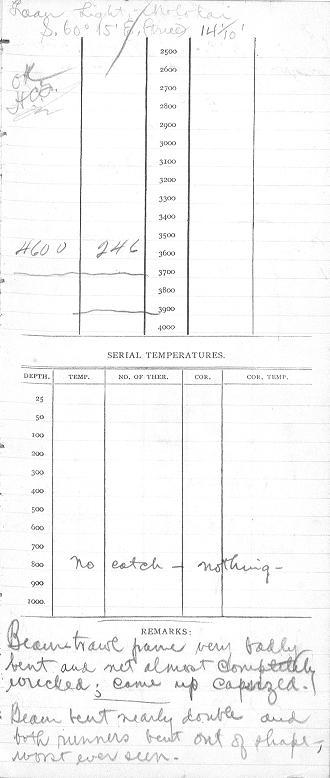 Laau Light, Molokai
S. 60° 15' E. 14 1/10'
OK
HCF.
2500
2600
2700
2800
2900
3000
3100
3200
3300
3400
3500
4600 246 3600
3700
3900
4000
SERIAL TEMPERATURES.
DEPTH. TEMP. NO. OF THER. COR. COR. TEMP.
25
50
100
200
300
400
500
600
700
800 no catch – nothing –
900
1000
REMARKS:
Beam trawl frame very badly
bent and net almost completely
wrecked; came up capsized.
Beam bent nearly double and
both runners bent out of shape,
worst ever seen.